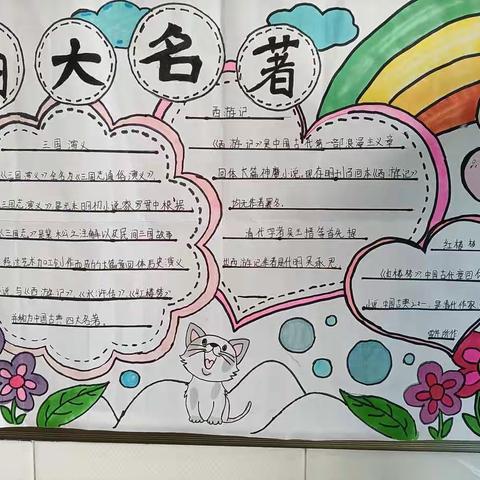 四大名著
三国演义
《三国演义》全名为《三国志通俗演义》,
《三国志演义》,是元末明初小说家罗贯中根据
《三国志》是裴松之注解以及民间三国故事
经过艺术加工创作而成的长篇章回体历史演义
小说 与《西游记》,《水浒传》,《红楼梦》
并称为中国古典四大名著。
西游记
《西游记》是中国古代第一部浪漫主义章
回体长篇神魔小说,现存明刊百回本《西游记》
均无作者署名。
清代学者吴玉搢等首先提
出西游记作者是明代吴承恩
红楼梦
《红楼梦》,中国古代章回体
小说 中国古典
是清代作家